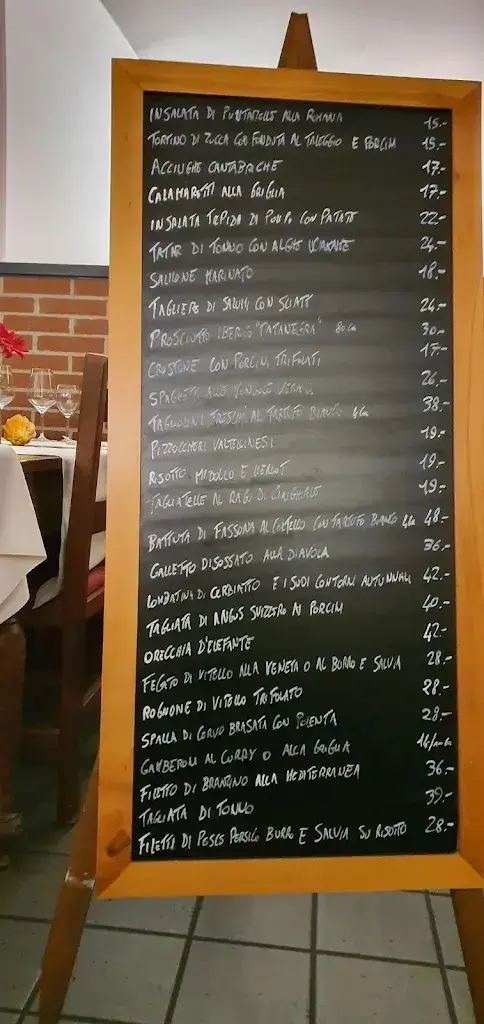 INSALATA DI PUNTARELLE ALLA ROMANA 15.-
TORTINO DI ZUCCA CON FONDUTA AL TALEGGIO E PORCINI 15.-
ACCIUGHE CANTABRICHE 17.-
CALAMARETTI ALLA GRIGLIA 17.-
INSALATA TEPIDA DI POLIPO CON PATATE 22.-
TATAR DI TONNO CON ALGHE 24.-
SALMONE MARINATO 18.-
TAGLIERE DI SALUMI CON SCIATT 24.-
PROSCIUTTO IBERICO "PATANEGRA" 80 GR 30.-
CROSTONE CON PORCINI TRIFOLATI 17.-
SPAGHETTI ALLE VONGOLE VERACI 26.-
TAGLIOLINI FRESCHI AL TARTUFO BIANCO 4GR 38.-
PIZZOCCHERI VALTELLINESI 19.-
RISOTTO MIDOLLO E MERLOT 19.-
TAGLIATELLE AL RAGÙ DI CINGHIALE 19.-
BATTUTA DI FASSONA AL COLTELLO CON TARTUFO BIANCO 4GR 48.-
GALLETTO DISOSSATO ALLA DIAVOLA 36.-
LOMBATINA DI CERBIATTO E I SUOI CONTORNI AUTUNNALI 42.-
TAGLIATA DI ANGUS SVIZZERO AI PORCINI 40.-
ORECCHIA D'ELEFANTE 42.-
FEGATO DI VITELLO ALLA VENETA O AL BURRO E SALVIA 28.-
ROGNONE DI VITELLO TRIFOLATO 28.-
SPALLA DI CERVO BRASATA CON POLENTA 28.-
GAMBERONI AL CURRY O ALLA GRIGLIA
FILETTO DI BRANZINO ALLA MEDITERRANEA 36.-
TAGLIATA DI TONNO 39.-
FILETTI DI PESCE PERSICO BURRO E SALVIA SU RISOTTO 28.-